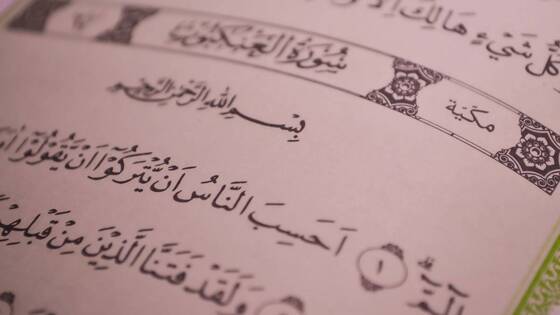 كُلُّ شَيْءٍ هَالِكٌ اِلَّا
سُورَةُ الْعَنْكَبُوتِ مَكِّيَّةٌ
بِسْمِ اللّٰهِ الرَّحْمٰنِ الرَّحِيمِ
الٓمٓ ﴿١﴾ اَحَسِبَ النَّاسُ اَنْ يُتْرَكُوٓا اَنْ يَقُولُوٓا
وَلَقَدْ فَتَنَّا الَّذِينَ مِنْ قَبْلِهِمْ